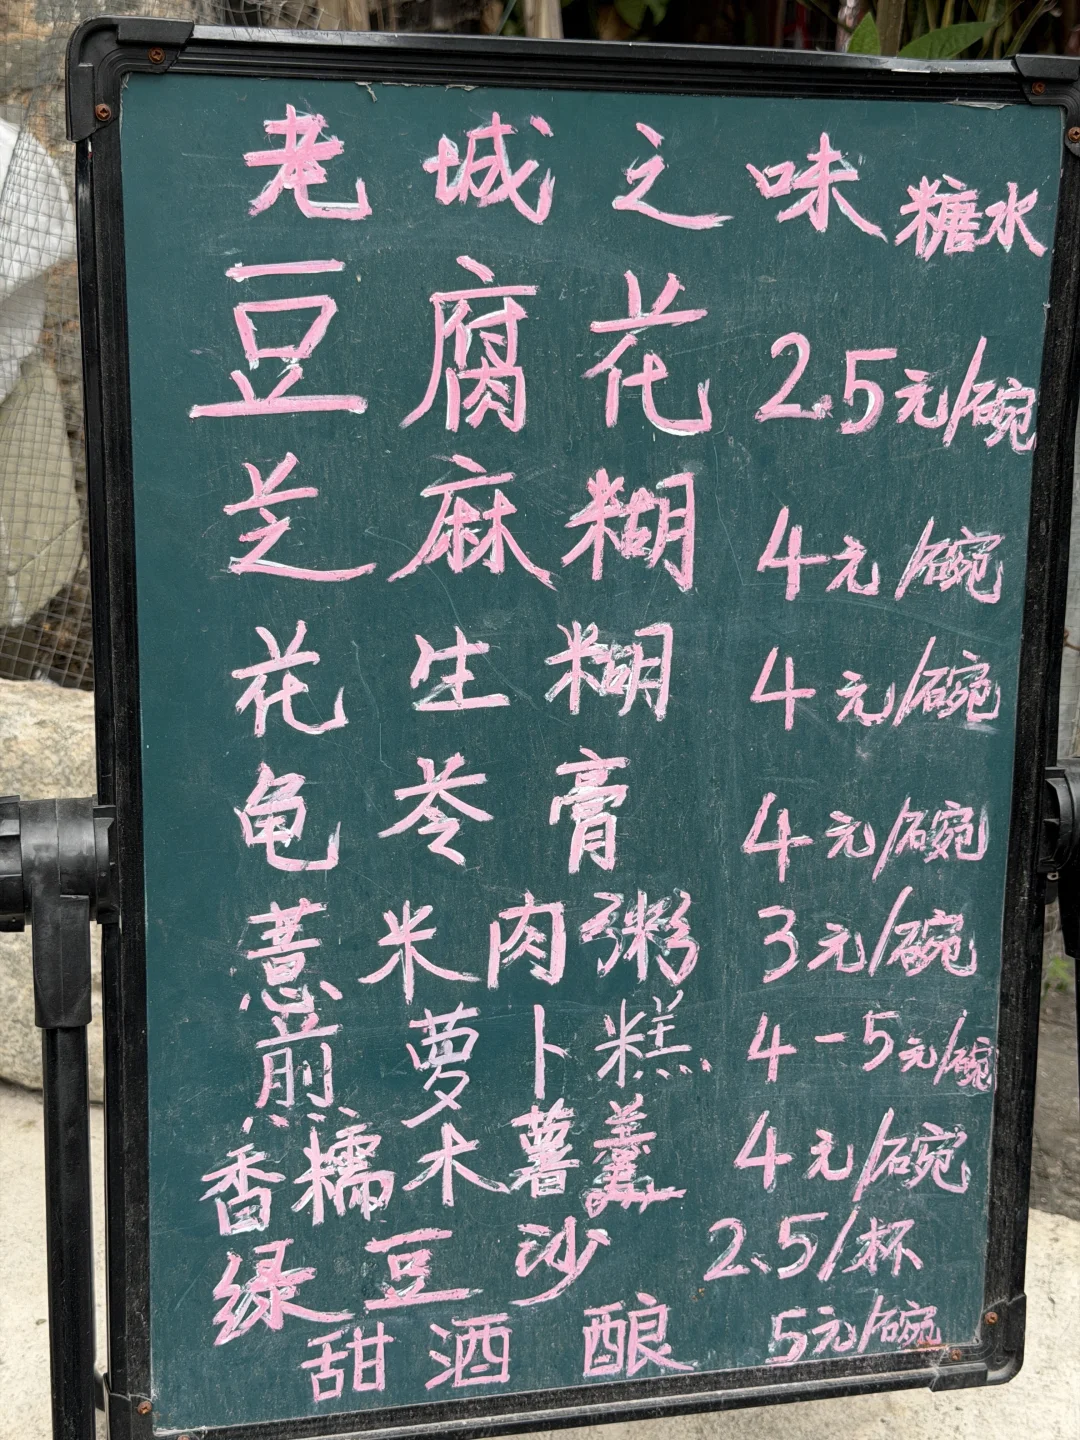 老城之味糖水
豆腐花 2.5元/碗
芝麻糊 4元/碗
花生糊 4元/碗
龟苓膏 4元/碗
薏米肉粥 3元/碗
煎萝卜糕 4-5元/碗
香糯木薯羹 4元/碗
绿豆沙 2.5/杯
甜酒酿 5元/碗